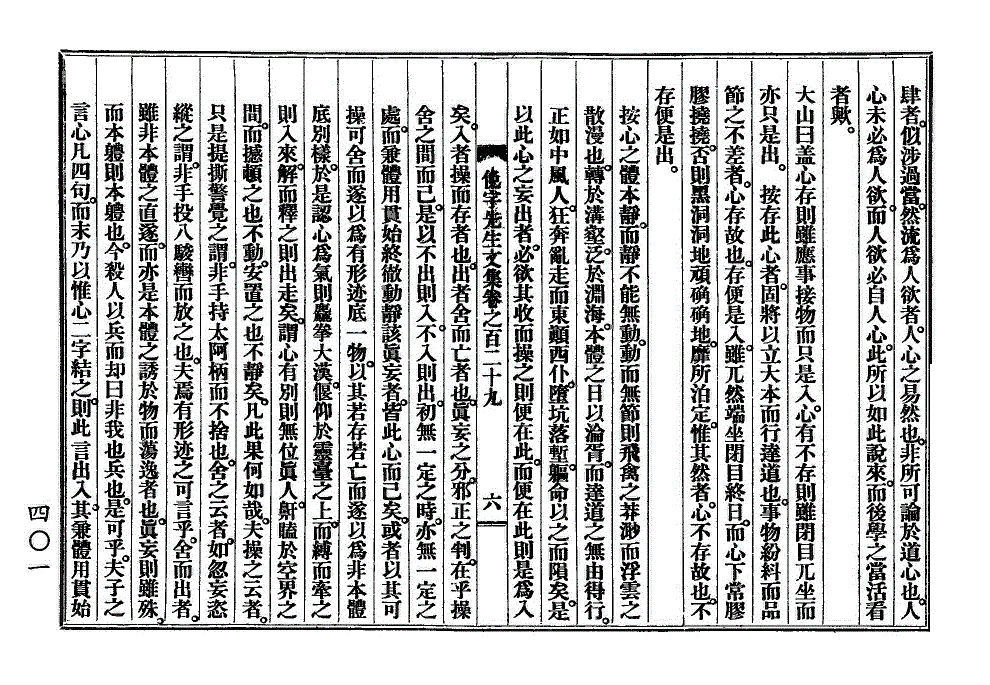 肆者。似涉過當。然流爲人欲者。人心之易然也。非所可論於道心也。人
心未必爲人欲。而人欲必自人心。此所以如此說來。而後學之當活看
者歟。
大山曰盖心存則雖應事接物而只是入。心有不存則雖閉目兀坐而
亦只是出。　按存此心者。固將以立大本而行達道也。事物紛糾而品
節之不差者。心存故也。存便是入。雖兀然端坐閉目終日。而心下常膠
膠撓撓。否則黑洞洞地頑确确地。靡所泊定。惟其然者。心不存故也。不
存便是出。
按心之體本靜。而靜不能無動。動而無節則飛禽之莽渺而浮雲之
散漫也。轉於溝壑。泛於淵海。本體之日以淪胥。而達道之無由得行。
正如中風人。狂奔亂走而東顚西仆。墮坑落塹。軀命以之而隕矣。是
以此心之妄出者。必欲其收而操之則便在此。而便在此則是爲入
俛宇先生文集卷之百二十九　六
矣。入者操而存者也。出者舍而亡者也。眞妄之分。邪正之判。在乎操
舍之間而已。是以不出則入。不入則出。初無一定之時。亦無一定之
處。而兼體用貫始終徹動靜該眞妄者。皆此心而已矣。或者以其可
操可舍而遂以爲有形迹底一物。以其若存若亡而遂以爲非本體
底別樣。於是認心爲氣則麤拳大漢。偃仰於靈臺之上。而縛而牽之
則入來。解而釋之則出走矣。謂心有別則無位眞人。鼾瞌於空界之
間。而撼頓之也不動。安置之也不靜矣。凡此果何如哉。夫操之云者。
只是提撕警覺之謂。非手持太阿柄而不捨也。舍之云者。如忽妄恣
縱之謂。非手投八駿轡而放之也。夫焉有形迹之可言乎。舍而出者。
雖非本體之直遂。而亦是本體之誘於物而蕩逸者也。眞妄則雖殊。
而本體則本體也。今殺人以兵而却曰非我也兵也。是可乎。夫子之
言心凡四句。而末乃以惟心二字結之。則此言出入。其兼體用貫始
四〇一